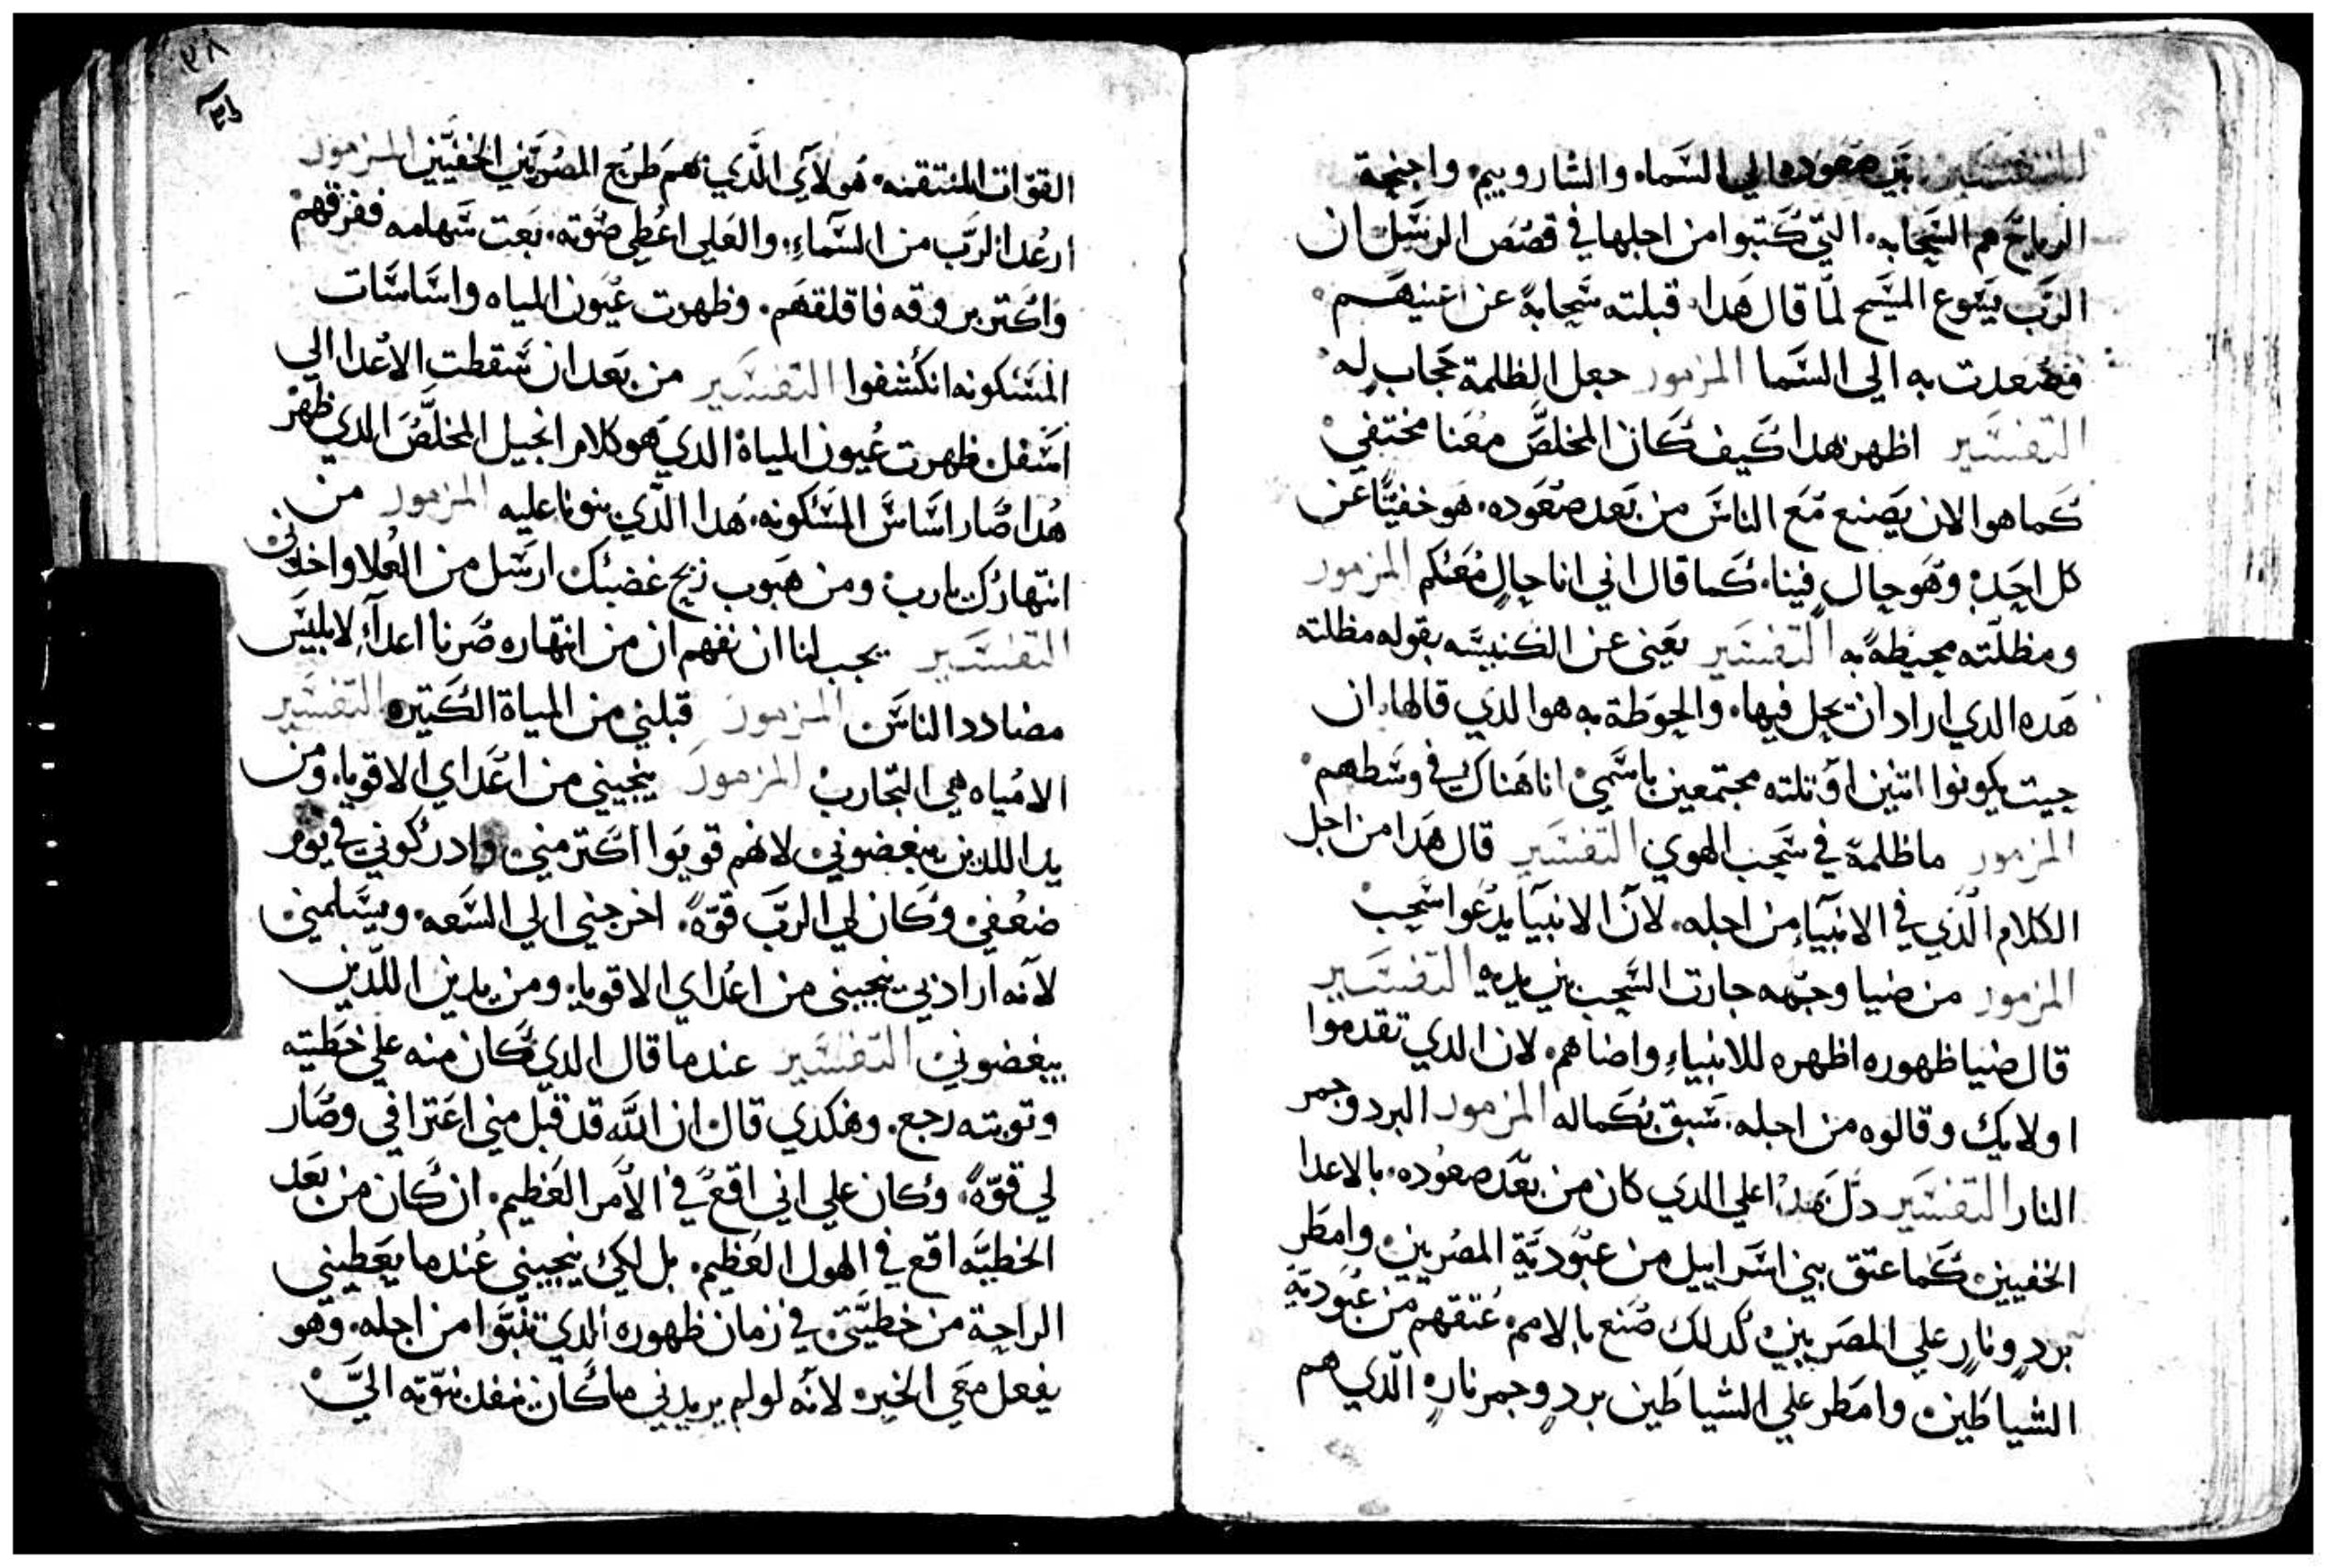 التفسير بين صعوده الي السماء والشاروبيم واجنحة
الرياح هم السحابه التي كتبوا من اجلها في قصص الرسل ان
الرب يسوع المسيح لما قال هدا قبلته سحابة عن اعينهم
فصعدت به الي السما المزمور جعل الظلمة حجاب له
التفسير اظهر هدا كيف كان المخلص معنا مختفي
كما هوا الان يصنع مع الناس من بعد صعوده هو خفيا عن
كل احد وهو حال فينا كما قال اني انا حال معكم المزمور
ومظلته محيطة به التفسير يعني عن الكنيسه بقوله مظلته
هده الدي اراد ان يحل فيها والحوطة به هوا الدي قالها ان
حيت يكونوا اتنين او تلته مجتمعين باسمي انا هناك في وسطهم
المزمور ماظلمة في سحب الهوي التفسير قال هدا من اجل
الكلام الذي في الانبياء من اجله لان الانبيا يدعوا سحب
المزمور من ضيا وجهه جازت السحب بين يديه التفسير
قال ضيا ظهوره اظهره للانبياء واضاهم لان الدي تقدموا
اولايك وقالوه من اجله سبق بكماله المزمور البرد وجمر
النار التفسير دل بهدا علي الدي كان من بعد صعوده بالاعدا
الخفيين كما عتق بني اسراييل من عبودية المصريين وامطر
برد ونار علي المصريين كدلك صنع بالامم عتقهم من عبودية
الشياطين وامطر علي الشياطين برد وجمر نار الدي هم
٣٨
القوات المنتقمنه هولاي الذي هم طرح المصريين الخفيين المزمور
ارعد الرب من السماء والعلي اعطي صوته بعت سهامه ففرقهم
واكتر بروقه فاقلقهم وظهرت عيون المياه واساسات
المسكونه انكشفوا التفسير من بعد ان سقطت الاعدا الي
اسفل ظهرت عيون المياة الدي هو كلام انجيل المخلص الدي ظهر
هدا صار اساس المسكونه هدا الدي بنونا عليه المزمور من
انتهارك يارب ومن هبوب ريح غضبك ارسل من العلا واخدني
التفسير يجب لنا ان نفهم ان من انتهاره صرنا اعداء لابليس
مضادد الناس المزمور قبلني من المياة الكتيره التفسير
الامياه هي التجارب المزمور ينجيني من اعداي الاقويا ومن
يدا اللدين يبغضوني لانهم قويوا اكتر مني وادركوني في يوم
ضعفي وكان لي الرب قوة اخرجني الي السعه ويسلمني
لانه اراد بي ينجيني من اعداي الاقويا ومن يدين اللدين
يبغضوني التفسير عندما قال الدي كان منه علي خطيته
وتوبته رجع وهكدي قال ان الله قد قبل مني اعترافي وصار
لي قوة وكان علي اني اقع في الامر العظيم ان كان من بعد
الخطيه اقع في الهول العظيم بل لكي ينجيني عندما يعطيني
الراحة من خطيتي في زمان ظهوره الدي تنبوا من اجله وهو
يفعل معي الخير لانه لو لم يريدني ما كان نفد نبوته الي